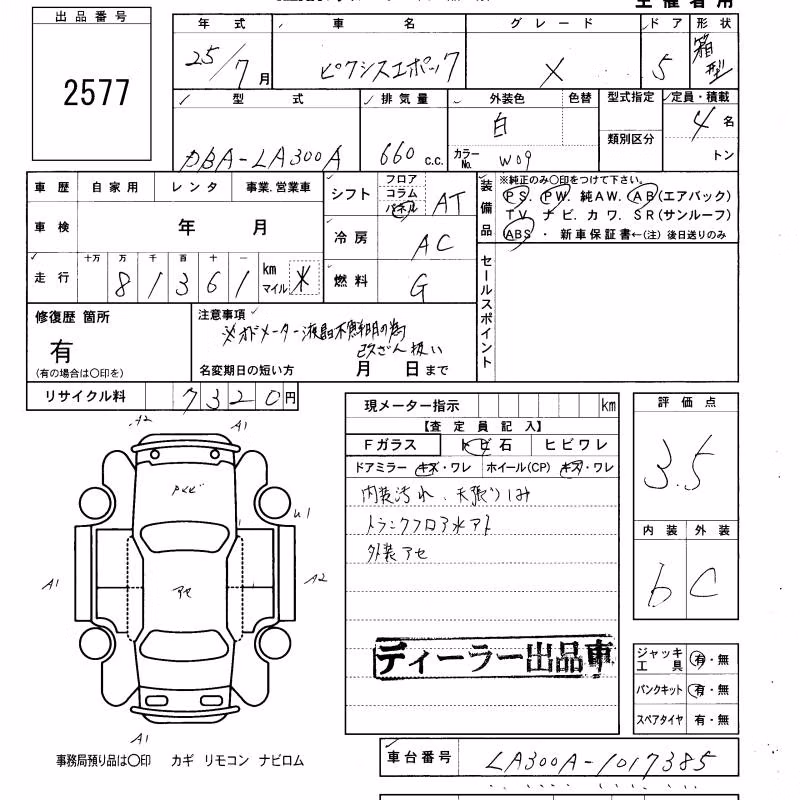 出品番号
2577
年式 車名 グレード ドア 形状
25/7月 ピクシスエポック X 5 箱型
型式 排気量 外装色 色替 型式指定 定員・積載
類別区分
DBA-LA300A 660 c.c. 白 カラーNo. W09 4名
トン
車歴 自家用 レンタ 事業.営業車
車検 年 月
走行 十万 万 千 百 十 一
81361 km マイル
シフト フロア コラム パネル AT
冷房 AC
燃料 G
装備品
※純正のみ〇印をつけて下さい。
PS. PW. 純AW. AB(エアバック)
TV ナビ. カワ. SR(サンルーフ)
ABS ・ 新車保証書←(注) 後日送りのみ
セールスポイント
修復歴 箇所
有
(有の場合は〇印を)
注意事項
※オドメーター液晶不鮮明の為
改ざん扱い
名変期日の短い方 月 日まで
リサイクル料 7320円
現メーター指示 km
【査定員記入】
Fガラス トビ石 ヒビワレ
ドアミラー キズ・ワレ ホイール(CP) キズ・ワレ
内装汚れ、天張りしみ
トランクフロア水アト
外装アセ
ディーラー出品車
評価点
3.5
内装 外装
b C
ジャッキ工具 有・無
パンクキット 有・無
スペアタイヤ 有・無
A2 A1
A1 アセ A2
A1
事務局預り品は〇印 カギ リモコン ナビロム
車台番号 LA300A-1017385